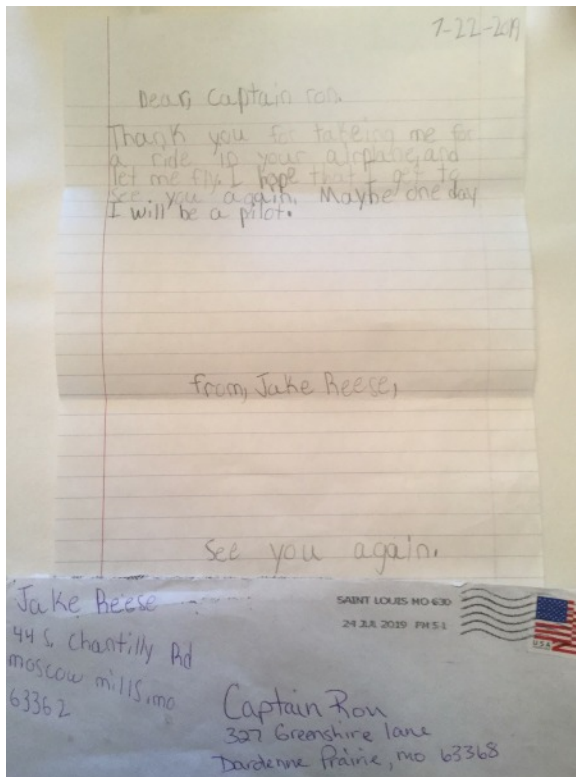 7-22-2019
Dear, Captain ron.
Thank you for takeing me for
a ride in your airplane, and
let me fly. I hope that I get to
see you again. Maybe one day
I will be a pilot.
from, Jake Reese,
See you again.
Jake Reese
44 S. Chantilly Rd
moscow mills, mo
63362
SAINT LOUIS MO 630
24 JUL 2019 PM 5 L
USA
Captain Ron
327 Greenshire lane
Dardenne Prairie, mo 63368